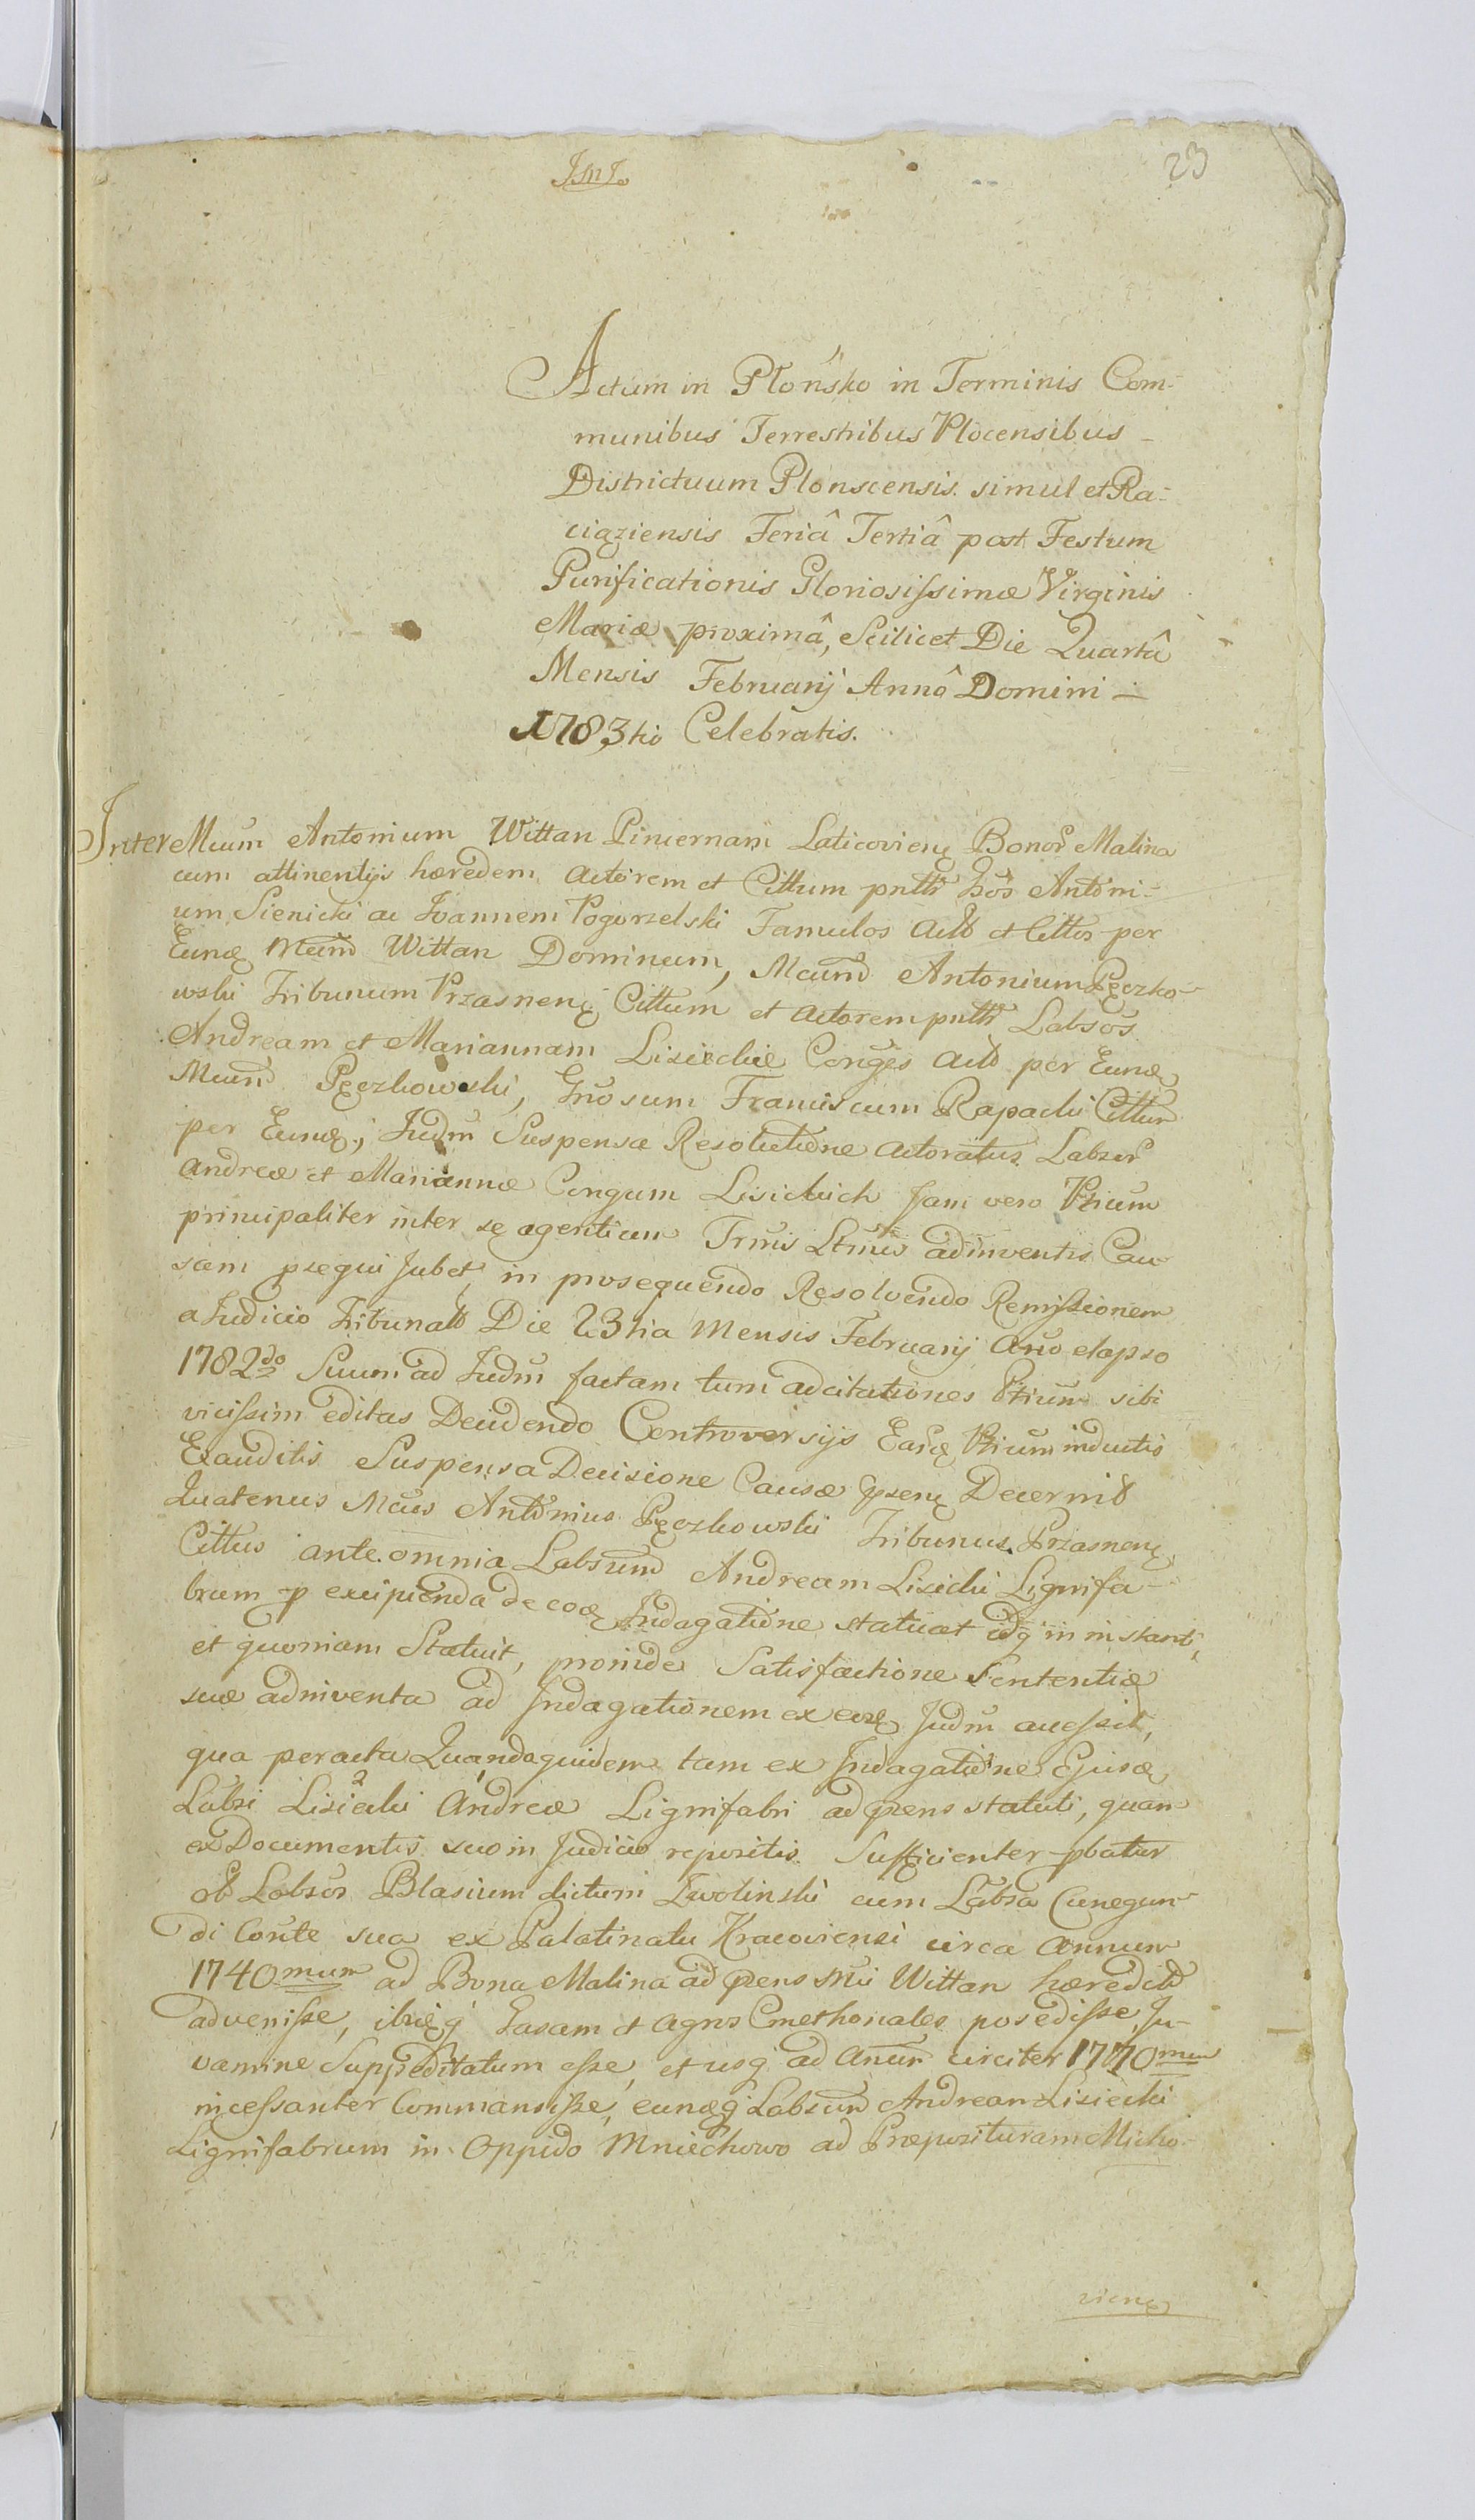 JMJ.
23
Actum in Płońsko in Terminis Com-
munibus Terrestribus Plocensibus -
Districtuum Plonscensis simul et Ra-
ciąziensis Feriâ Tertiâ post Festum
Purificationis Gloriosissimæ Virginis
Mariæ proximâ, Scilicet Die Quartâ
Mensis Februarij Annô Domini -
1783tio Celebratis.
Inter Mcum Antonium Wittan Pincernam Laticovieng Bonor Malina
cum attinentijs hæredem Actorem et Cittum pntti Gsos Antoni-
um Sienicki ac Joannem Pogorzelski Famulos Actt et Cittos per
Eund Mcum Wittan Dominum, Mcum Antonium Pęczko-
wski Tribunum Przasneng Cittum et Actorem pntti Labsos
Andream et Mariannam Lisieckie Conges Actt per Eund
Mcum Pęczkowski, Gnosum Franciscum Rapacki Cittum
per Eund, Judm Suspensa Resolutione Actoratus Labsor
Andreæ et Mariannæ Congum Lisickich Jam vero Ptium
principaliter inter se agentium Trmis Ltmis adinventis Cau-
sam psequi Jubet, in prosequendo Resolvendo Remissionem
a Judicio Tribunali Die 23tia Mensis Februarij Ano elapso
1782do Suum ad Judm factam tum ad citationes Ptium sibi
vicissim editas Decidendo Controversijs Earund Ptium inductis
Exauditis Suspensa Decisione Causæ pseng Decernit
Quatenus Mcus Antonius Pęczkowski Tribunus Przasneng
Cittus ante omnia Labsum Andream Lisiecki Lignifa-
brum p excipienda de eod Indagatione statuat idq in instanti,
et quoniam Statuit, proinde Satisfactione Sententiæ
suæ adinventa ad Indagationem ex eod Judm accessit,
qua peracta Quandoquidem tam ex Indagatione Ejusd
Labsi Lisiecki Andreæ Lignifabri ad psens statuti, quam
ex Documentis suo in Judicio repositis Sufficienter pbatur
Labsos Blasium dictum Zwolinski cum Labsa Cunegun-
di Conte sua ex Palatinatu Kracoviensi circa Annum
1740mum ad Bona Malina ad psens Mci Wittan hæredit
advenisse, ibiq Casam et agros Cmethonales posedisse, Ju-
vamine Suppeditatum esse, et usq ad Anum circiter 1770mum
incessanter Commansisse, eundq Labsum Andream Lisiecki
Lignifabrum in Oppido Mniechowo ad Præposituram Micho-
vieng